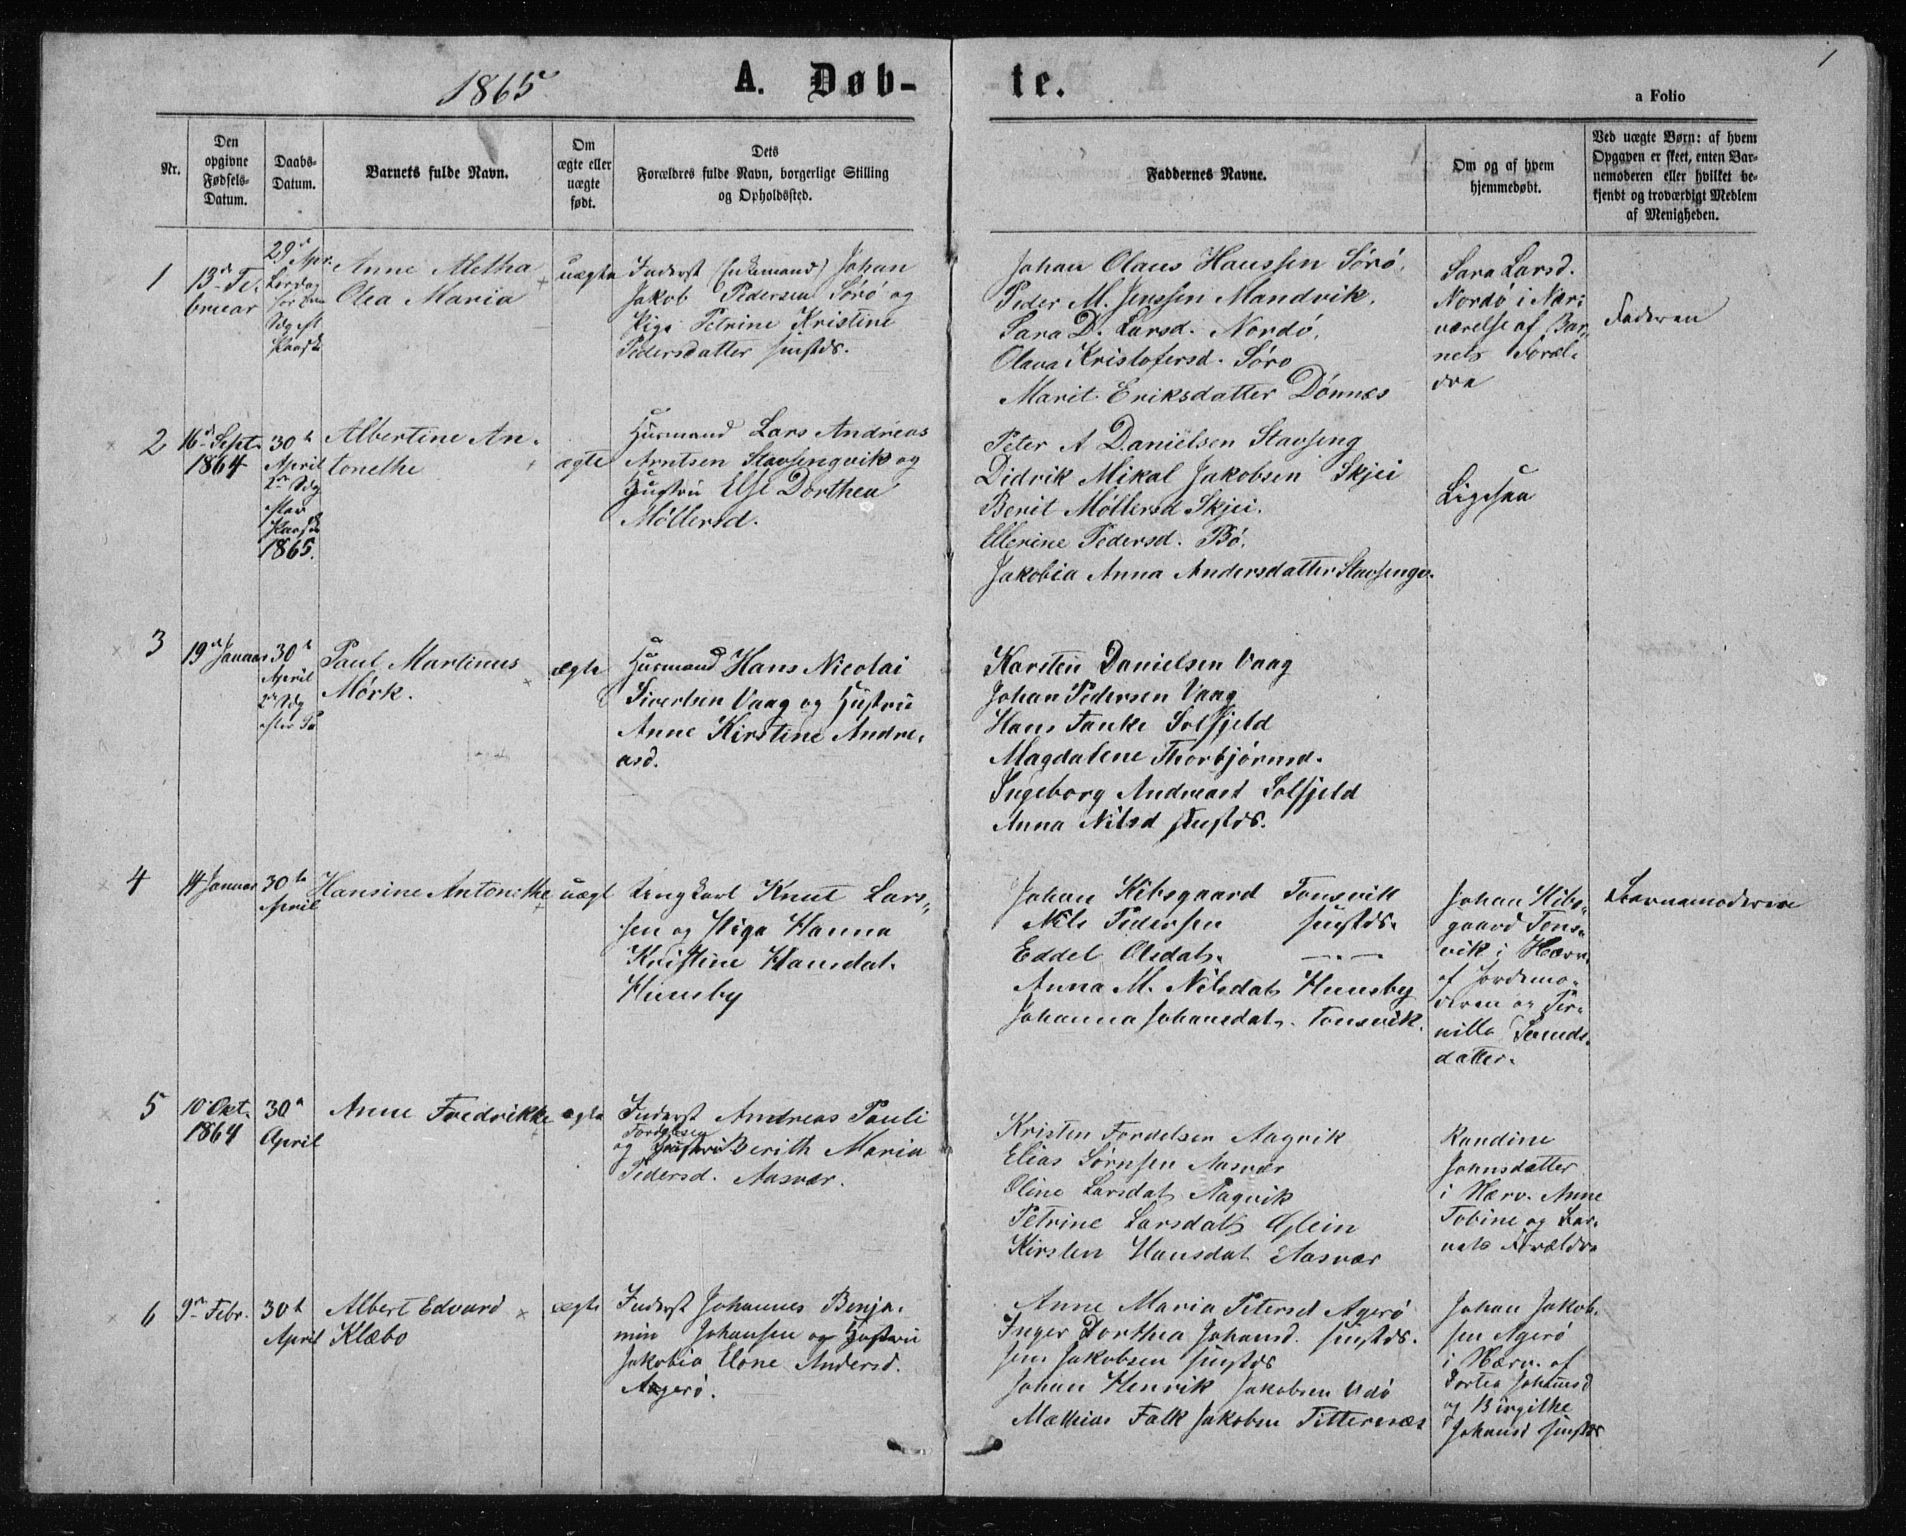 1865
A. Døb-
te.
1
a Folio
Nr.
Den
opgivne
Fødsels-
Datum.
Daabs-
Datum.
Barnets fulde Navn.
Om
ægte eller
uægte
født.
Dets
Forældres fulde Navn, borgerlige Stilling
og Opholdssted.
Faddernes Navne.
Om og af hvem
hjemmedøbt.
Ved uægte Børn: af hvem
Opgaven er skeet, enten Bar-
nemoderen eller hvilket be-
kjendt og troværdigt Medlem
af Menigheden.
1
13de Fe-
bruar
29de Apr.
Lørdag
før 2den
Sdg eft
Paaske
Anne Metha
Olea Maria
uægte
Inderst (Enkemand) Johan
Jakob Pedersen Sørø og
Pige Petrine Kristine
Pedersdatter sustds.
Johan Olaus Hanssen Sørø.
Peder M. Jenssen Mandvik.
Sara D. Larsd. Nordø.
Olava Kristofersd. Sørø
Marit Eriksdatter Dønnes
Sara Larsd.
Nordø i Nær-
værelse af Bar-
nets Foræl-
dre
Faderen
2
16de Sept.
1864
30te
April
2den Sdg
efter
Paaske
1865.
Albertine An-
tonethe
ægte
Husmand Lars Andreas
Arntsen Stavsengvik og
Hustru Else Dorthea
Møllersd.
Peter A Danielsen Stavseng
Didrik Mikal Jakobsen Skjei
Berit Møllersd Skjei.
Ellerine Pedersd. Bø.
Jakobia Anna Andersdatter Stavsengv.
Ligesaa
3
19de Januar
30te
April
2den Sdg
efter Pa
Paul Martinus
Mørk.
ægte
Husmand Hans Nicolai
Sivertsen Vaag og Hustru
Anne Kirstine Andre-
asd.
Karsten Danielsen Vaag
Johan Pedersen Vaag
Hans Fanke Solfjeld
Magdalene Thorbjørnsd.
Ingeborg Andreasd Solfjeld
Anna Nilsd sustds.
4
14 Januar
30te
April
Hansine Antonethe
uægt
Ungkarl Knut Lars-
sen og Pige Hanna
Kristine Hansdat.
Hunsby
Johan Kibsgaard Tonsvik
Nils Pedersen sustds.
Eddel Olsdat.
Anna M. Nilsdat Hunsby
Johanna Johansdat. Tonsvik.
Johan Kibs-
gaard Tons-
vik i Nærv.
af Jordemo-
deren og Per-
nille
datter.
Barnemoderen
5
10 Okt.
1864
30te
April
Anne Fredrikke
ægte
Inderst Andreas Pauli
Fordelsen
og Hustru Berith Maria
Pedersd. Aasvær.
Kristen Fordelsen Aagvik
Elias Sørnsen Aasvær
Oline Larsdat Aagvik
Petrine Larsdat Glein
Kirsten Hansdat Aasvær
Randine
Johnsdatter
i Nærv. Anne
Tobine og Bar-
nets Forældre
6
9de Febr.
30te
April
Albert Edvard
Klæbo
ægte
Inderst Johannes Benja-
min Johansen og Hustru
Jakobia Elone Andersd.
Agerø.
Anne Maria Petersd Agerø
Inger Dorthea Johansd. sustds.
Jens Jakobsen sustds
Johan Henrik Jakobsen
Mathias Falk Jakobsen Titternæs
Johan Jakob-
sen Agerø
i Nærv. af
Dortea Johansd
og Birgithe
Johansd sustds